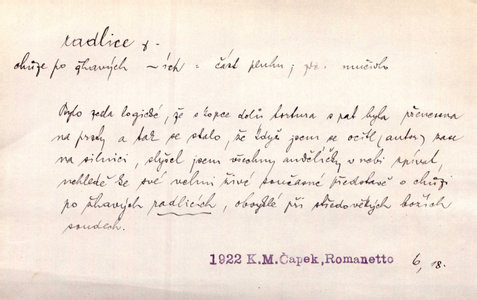 radlice f.
chůze po žhavých ~ích = část pluhu; zde. mučidlo
Bylo zcela logické, že s kopce dolů tortura s pat byla přenesena
na prsty a tak se stalo, že když jsem se ocitl (autor) zase
na silnici, slyšel jsem všechny andělíčky v nebi zpívat,
nehledě ke své velmi živé současné představě o chůzi
po žhavých radlicích, obvyklé při středověkých božích
soudech.
1922 K.M.Čapek, Romanetto 6, 18.